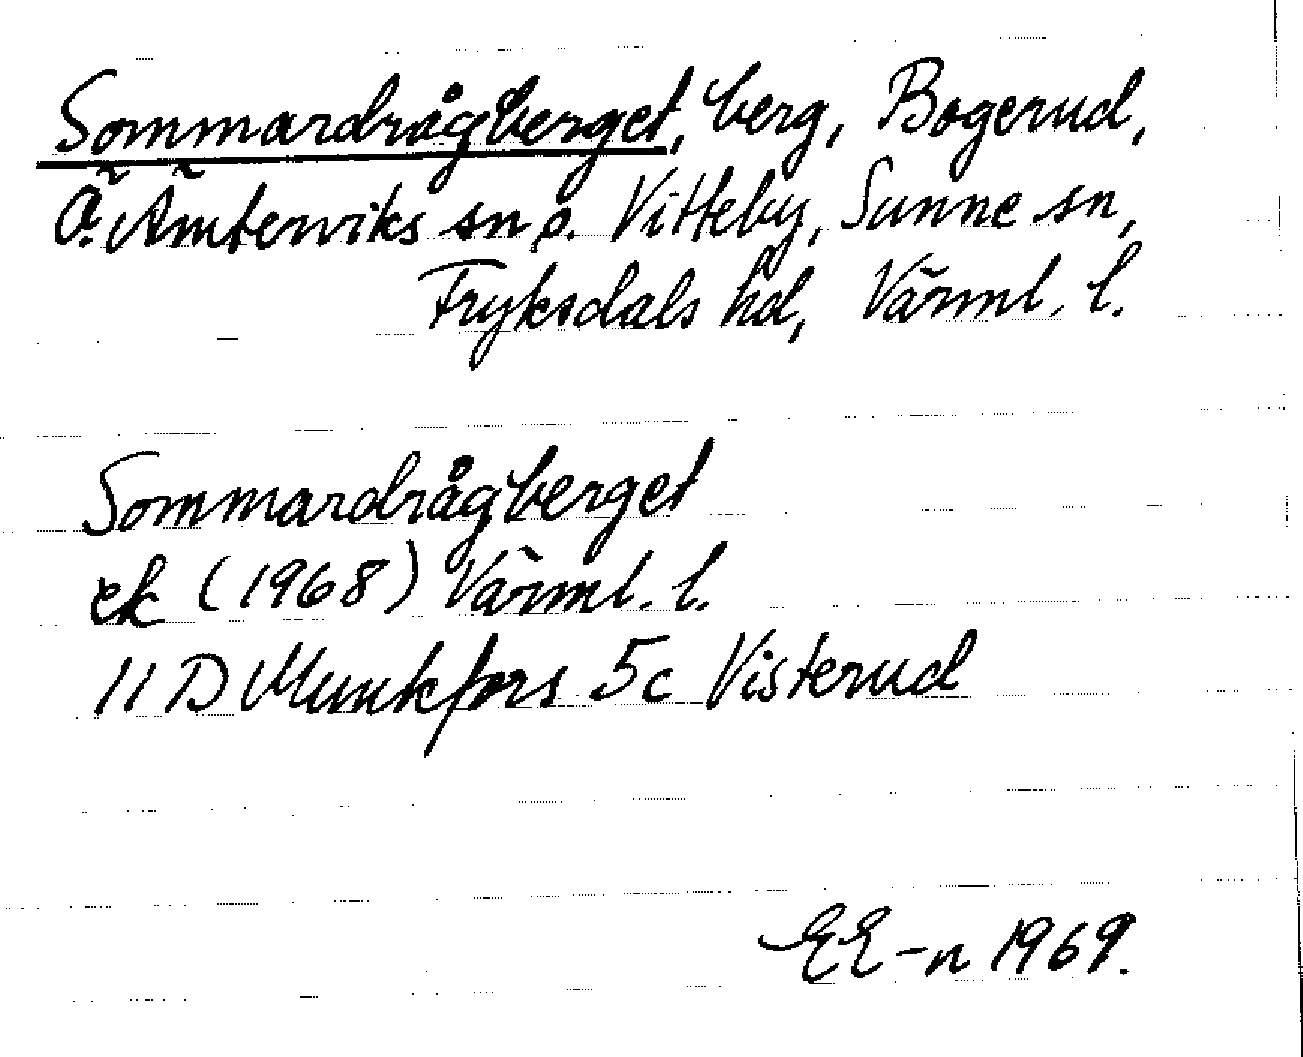 Sommardrågberget, berg, Bogerud,
Ö. Ämterviks sn o. Vitteby, Sunne sn,
Fryksdals hd, Värml. l.
Sommardrågberget
ek (1968) Värml. l.
11 D Munkfors 5c Visterud
EE-n 1969.